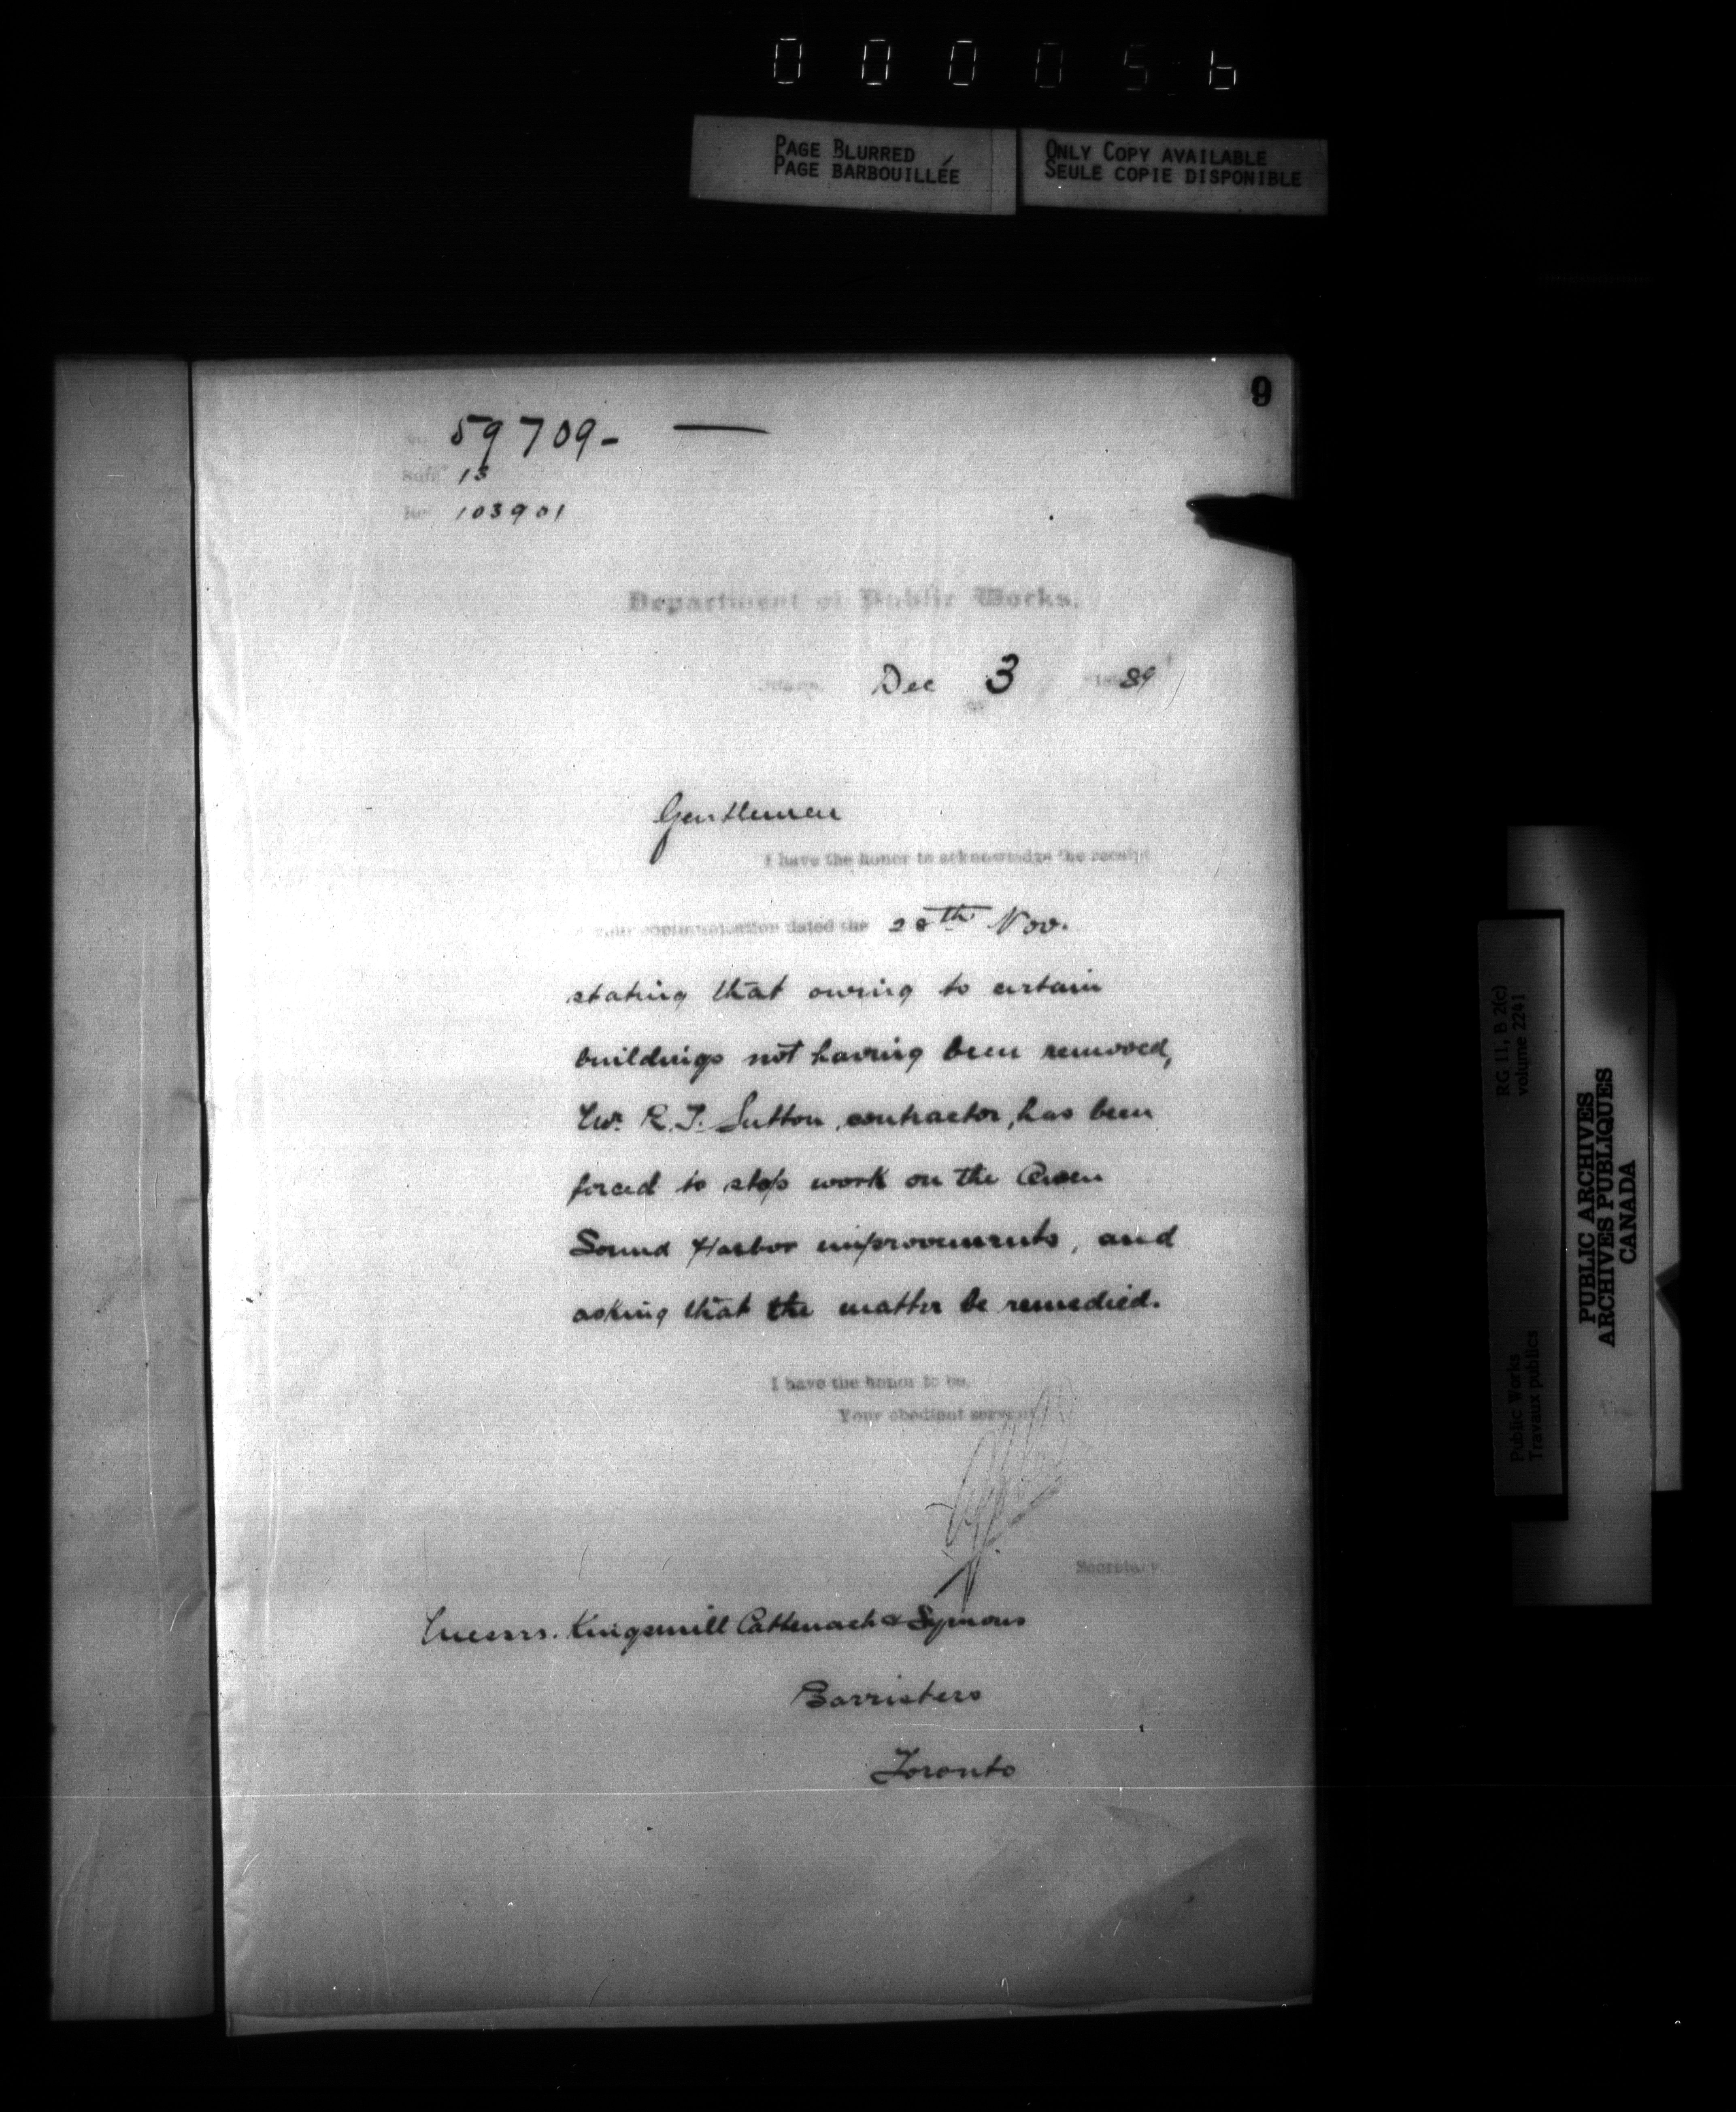 00005b
PAGE BLURRED
PAGE BARBOUILLÉE
ONLY COPY AVAILABLE
SEULE COPIE DISPONIBLE
9
59709-
Subj 13
Ref 103901
Department of Public Works.
Ottawa, Dec 3 1889
Gentlemen
I have the honor to acknowledge the receipt
of your communication dated the 28th Nov.
stating that owing to certain
buildings not having been removed,
Mr. R. T. Sutton, contractor, has been
forced to stop work on the Owen
Sound Harbor improvements, and
asking that the matter be remedied.
I have the honor to be,
Your obedient servant
Secretary.
Messrs. Kingsmill Cattenach & Symons
Barristers
Toronto
RG 11, B 2(c)
volume 2241
Public Works
Travaux publics
PUBLIC ARCHIVES
ARCHIVES PUBLIQUES
CANADA